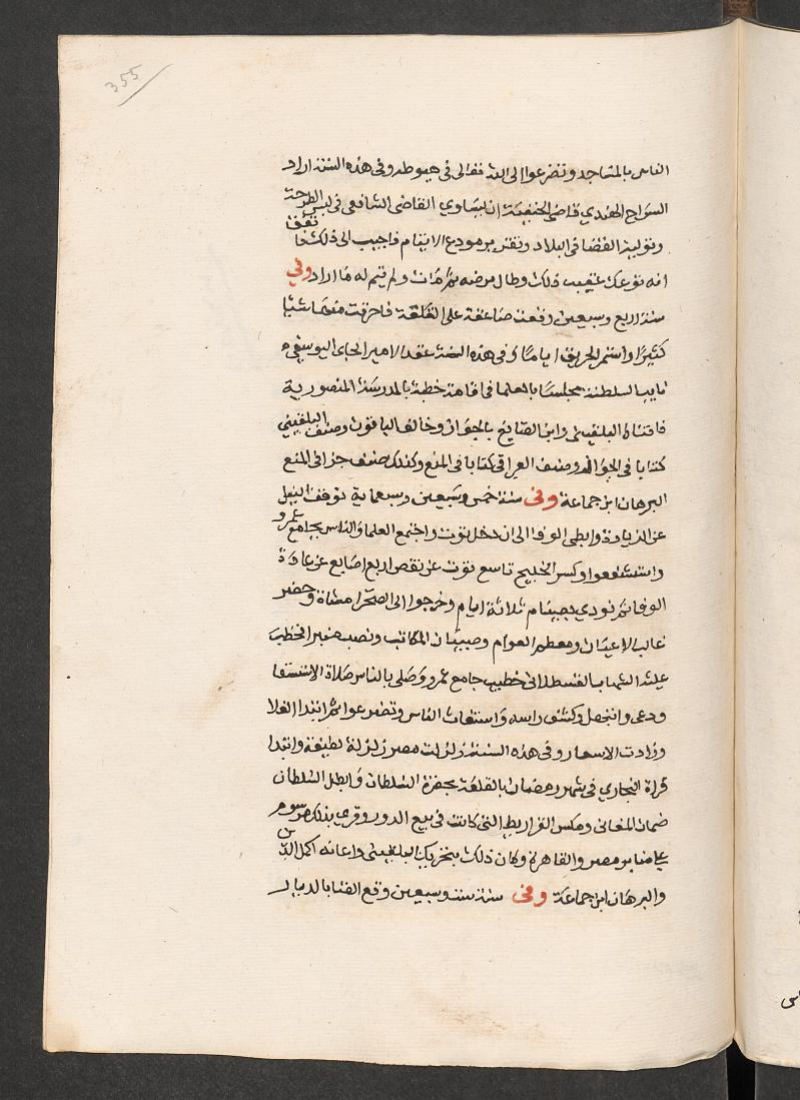 355
الناس بالمساجد وتضرعوا الى الله تعالى في هبوطه وفي هذه السنة اراد
السراج الهندي قاضي الحنفية ان يساوي القاضي الشافعي في لبس الطرحة
وتولية القضا في البلاد وتقرير مودع الايتام فاجيب الى ذلك فاتفق
انه توعك عقيب ذلك وطال مرضه ثم مات ولم يتم له ما اراد وفي
سنة اربع وسبعين وقعت صاعقة على القلعة فاحرقت منها شيئا
كثيرا واستمر الحريق اياما وفي هذه السنة عقد الامير الجاى اليوسفي
نايب السلطنة مجلسا بالعلما في اقامة خطبة بالمدرسة المنصورية
فافتاه البلقيني وابن الصايغ بالجواز وخالف الباقون وصنف البلقيني
كتابا في الجواز وصنف العراقي كتابا في المنع وكذلك صنف جزا في المنع
البرهان ابن جماعة وفي سنة خمس وسبعين وسبعماية توقف النيل
عن الزيادة وابطى الوفا الى ان دخل توت واجتمع العلما والناس بجامع عمرو
واستشفعوا وكسر الخليج تاسع توت عن نقص اربع اصابع عن عادة
الوفا ثم نودي بصيام ثلاثة ايام وخرجوا الى الصحرا مشاة وحضر
غالب الاعيان ومعظم العوام وصبيان المكاتب ونصب منبر فخطب
عليه الشهاب القسطلاني خطيب جامع عمرو وصلى بالناس صلاة الاستسقا
ودعى وابتهل وكشف راسه واستغاث الناس وتضرعوا ثم ابتدا الغلا
وزادت الاسعار وفي هذه السنة زلزلت مصر زلزلة لطيفة وابتدا
قراة البخاري في شهر رمضان بالقلعة بحضرة السلطان وابطل السلطان
ضمان المغاني ومكس القراريط التي كانت في بيع الدور وقري بذلك مرسوم
على منابر مصر والقاهرة وكان ذلك بتحريك البلقيني واعانه اكمل الدين
والبرهان ابن جماعة وفي سنة ست وسبعين وقع الفنا بالديار